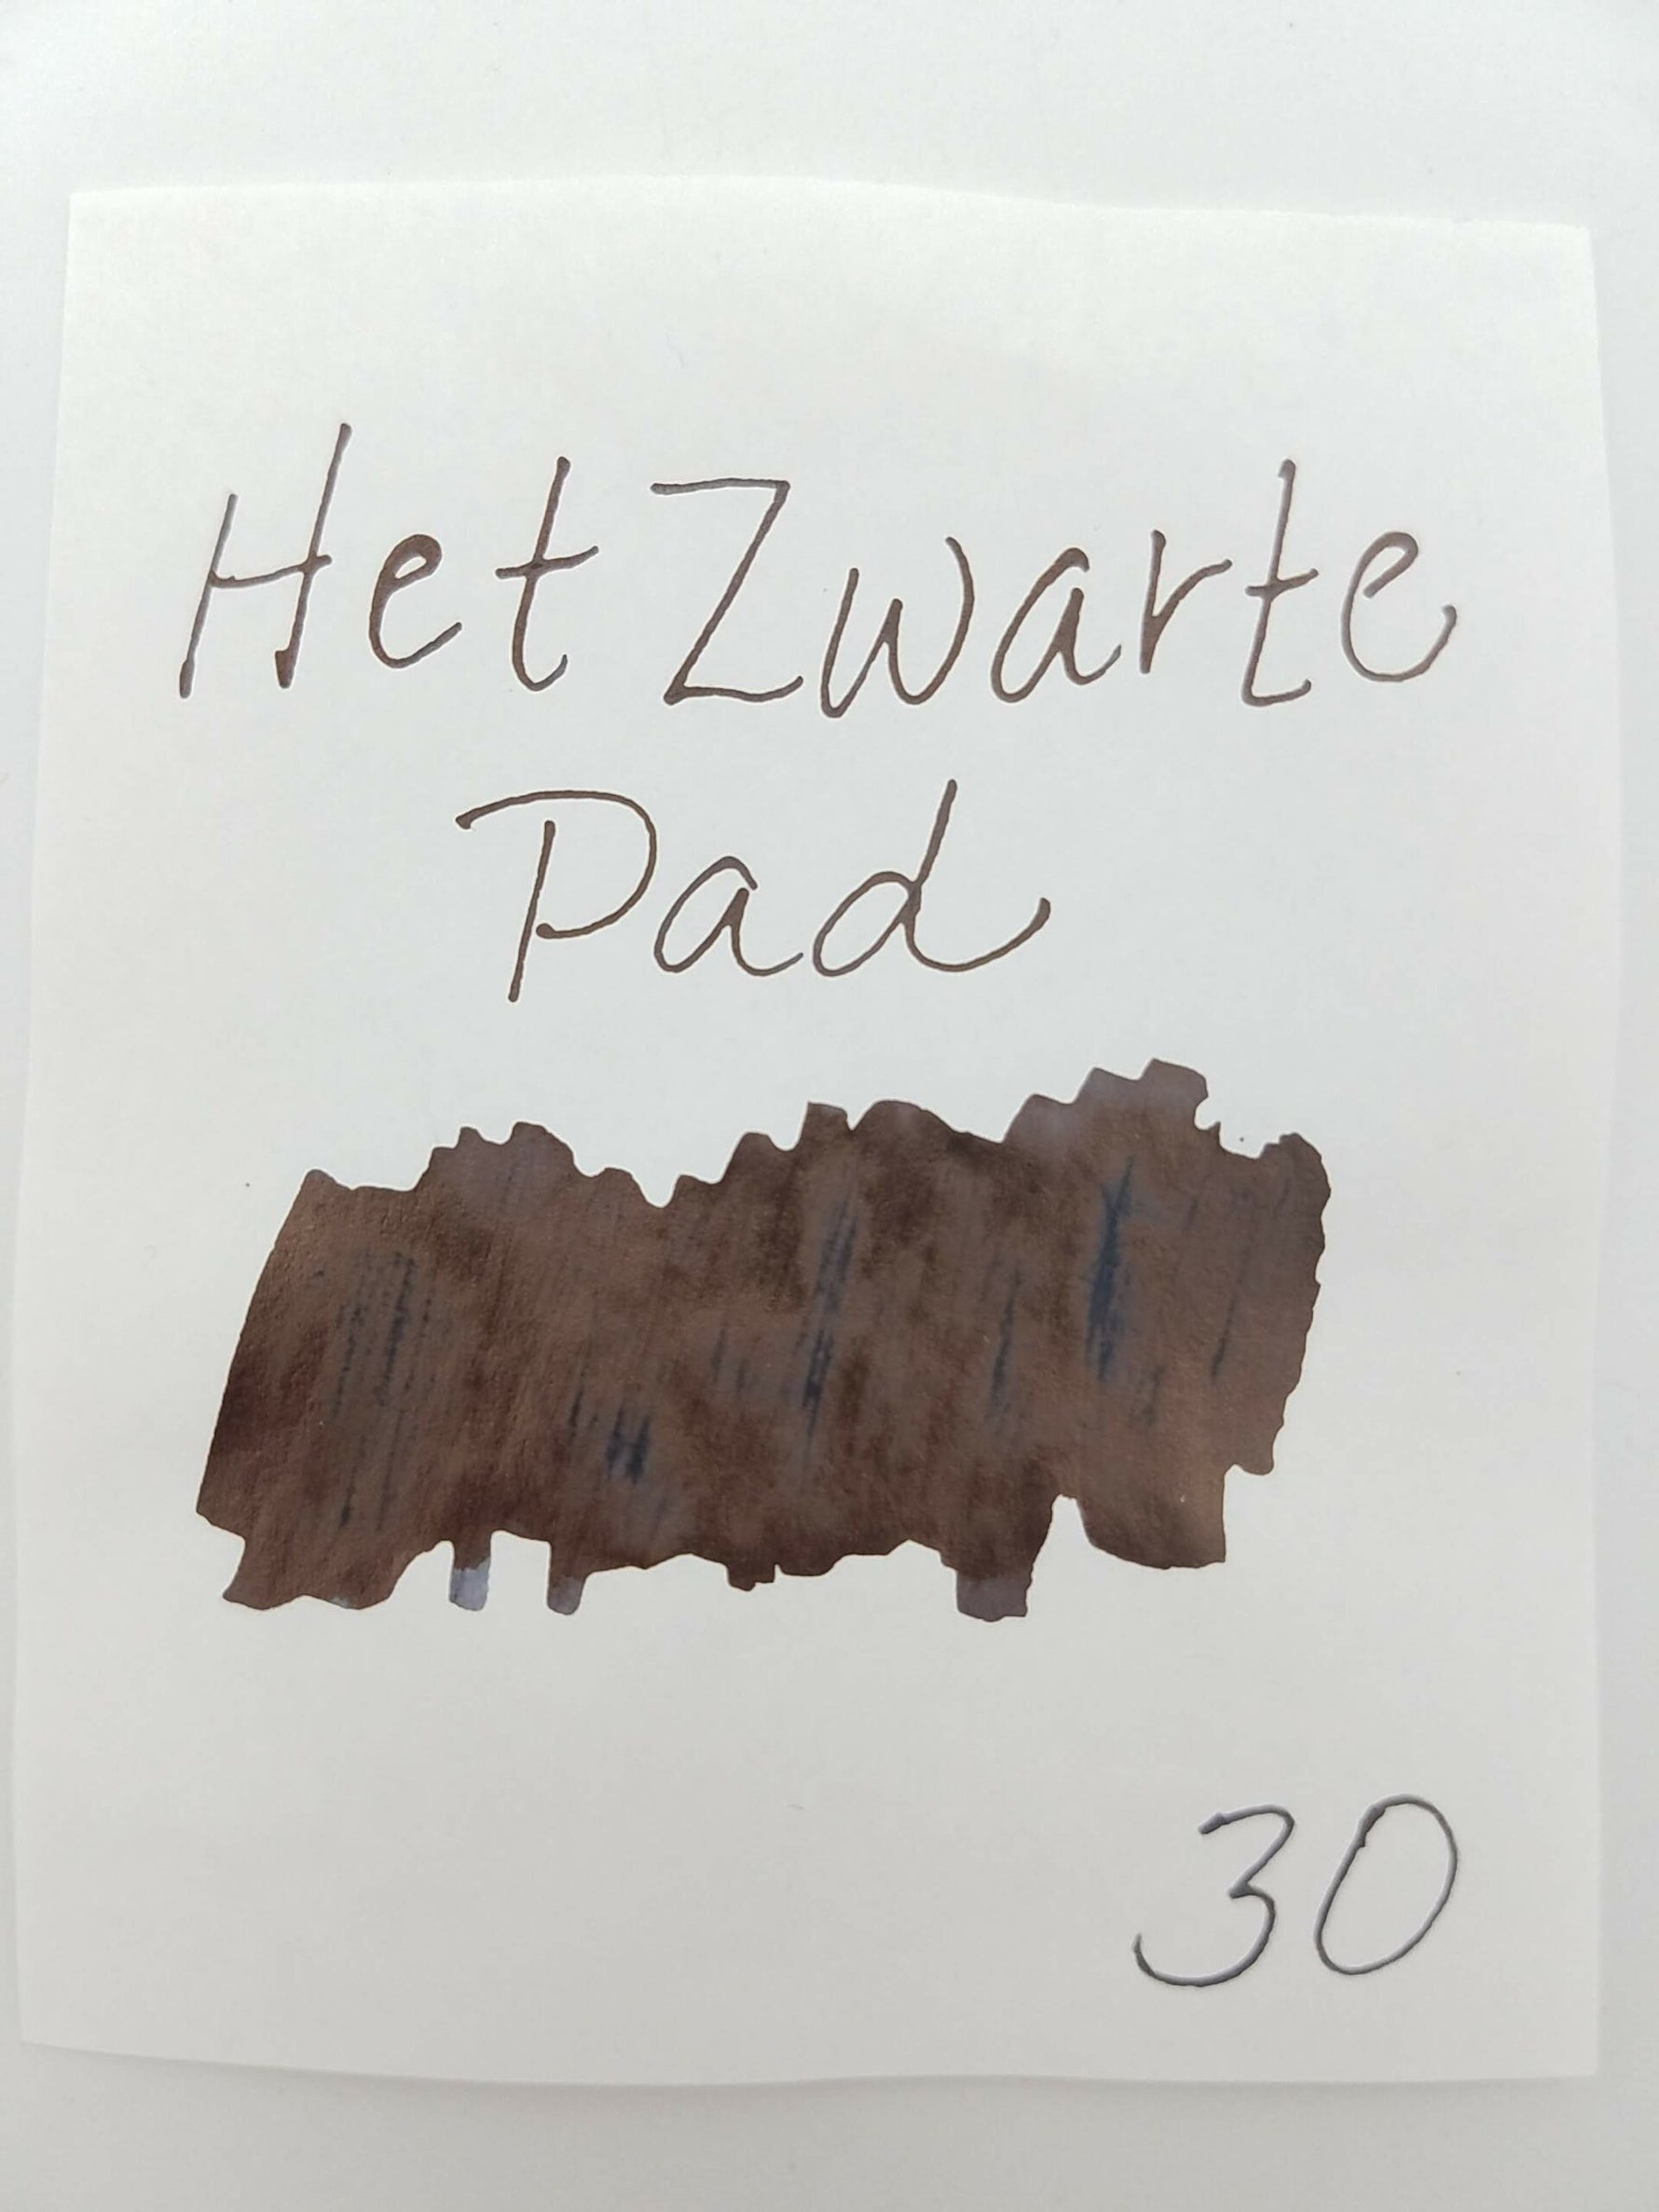 Het Zwarte
Pad
30